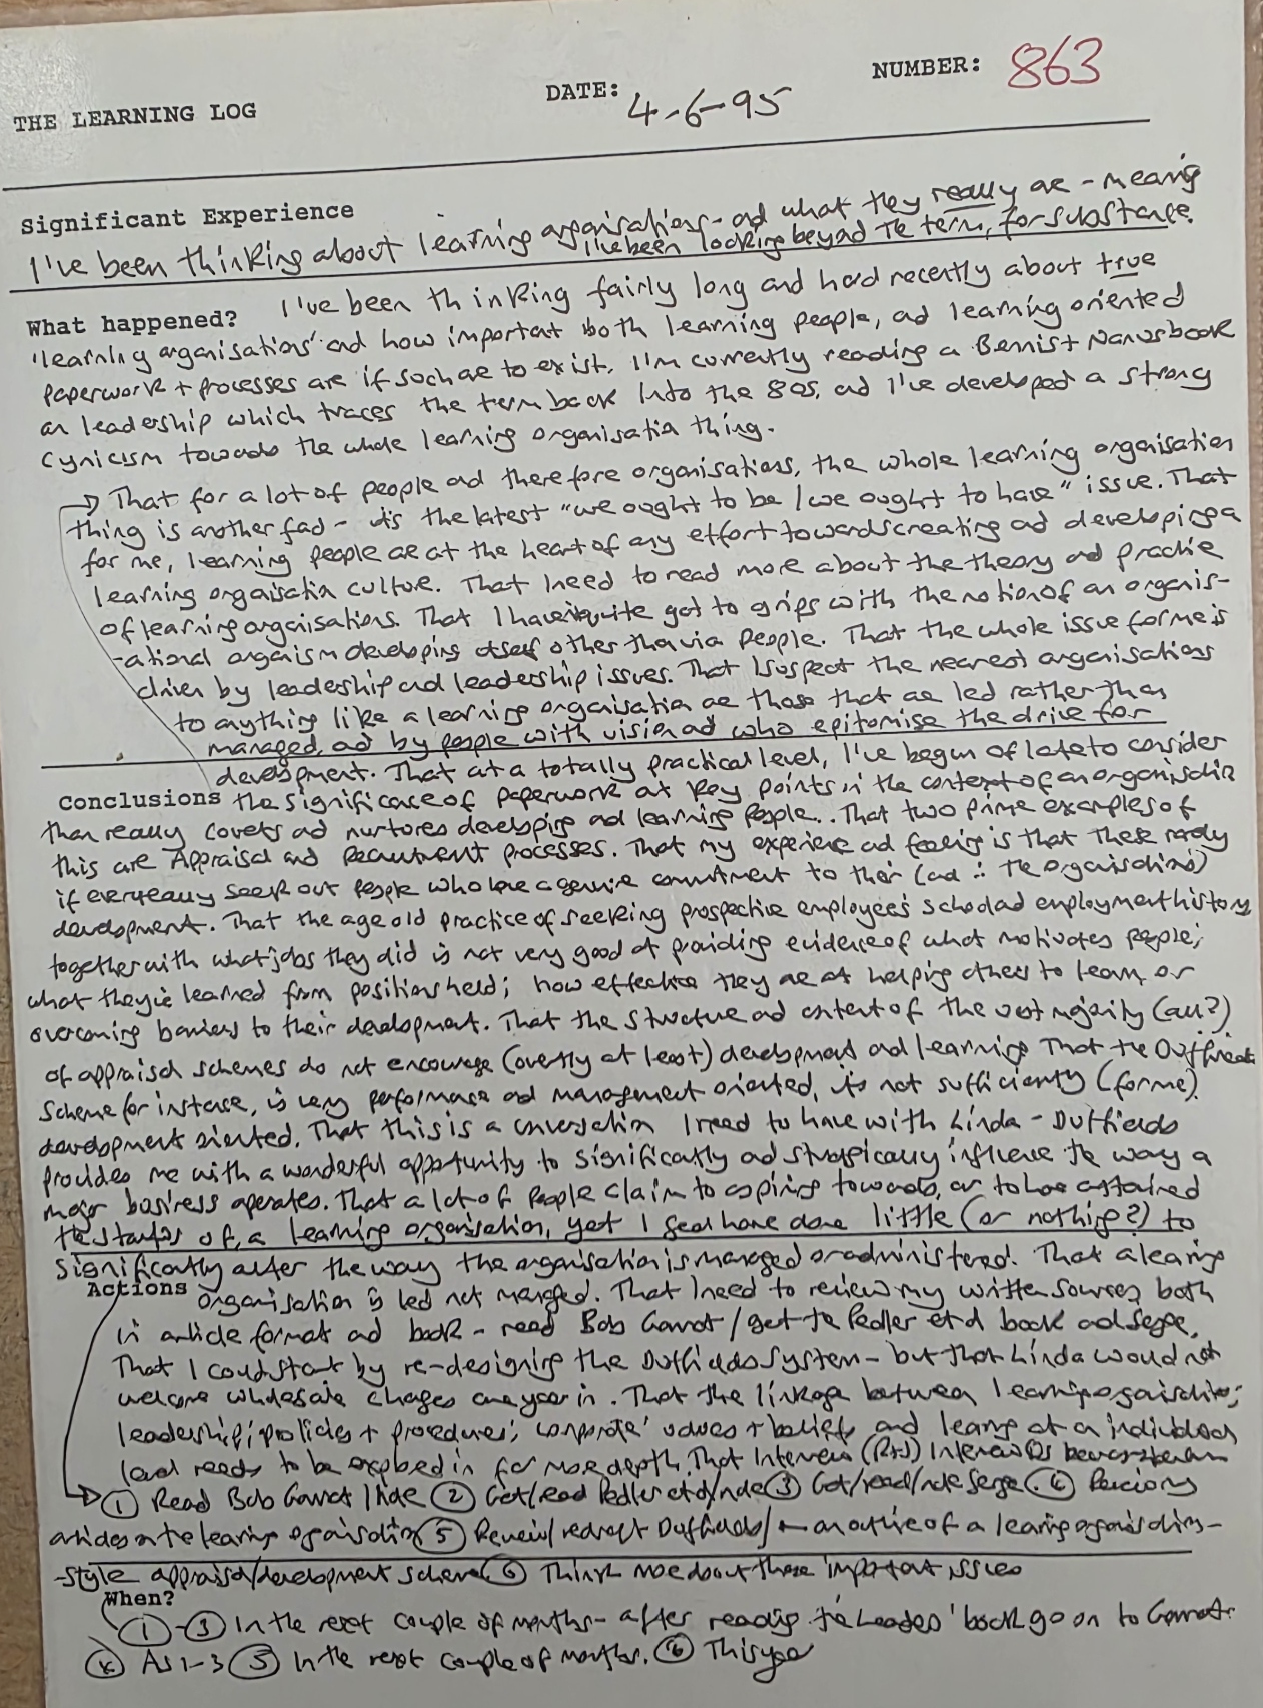 THE LEARNING LOG
DATE: 4-6-95
NUMBER: 863
Significant Experience
I've been thinking about learning organisations - and what they really are - meaning
I've been looking beyond the term, for substance.
What happened? I've been thinking fairly long and hard recently about true
'learning organisations' and how important both learning people, and learning oriented
paperwork + processes are if such are to exist. I'm currently reading a Bennis + Nanus book
on leadership which traces the term back into the 80s, and I've developed a strong
cynicism towards the whole learning organisation thing.
→ That for a lot of people and therefore organisations, the whole learning organisation
thing is another fad - it's the latest "we ought to be / we ought to have" issue. That
for me, learning people are at the heart of any effort towards creating and developing a
learning organisation culture. That I need to read more about the theory and practice
of learning organisations. That I haven't quite got to grips with the notion of an organis-
-ational organism developing itself other than via people. That the whole issue for me is
driven by leadership and leadership issues. That I suspect the nearest organisations
to anything like a learning organisation are those that are led rather than
managed, and by people with vision and who epitomise the drive for
development. That at a totally practical level, I've begun of late to consider
Conclusions the significance of paperwork at key points in the context of an organisation
than really covets and nurtures developing and learning people.. That two prime examples of
this are Appraisal and Recruitment processes. That my experience and feeling is that these rarely
if ever really seek out people who have a genuine commitment to their (and ∴ the organisations)
development. That the age old practice of seeking prospective employees school and employment history
together with what jobs they did is not very good at providing evidence of what motivates people;
what they've learned from positions held; how effective they are at helping others to learn, or
overcoming barriers to their development. That the structure and content of the vast majority (all?)
of appraisal schemes do not encourage (overtly at least) development and learning. That the Duffields
scheme for instance, is very performance and management oriented, it's not sufficiently (for me)
development oriented. That this is a conversation I need to have with Linda - Duffields
provides me with a wonderful opportunity to significantly and strategically influence the way a
major business operates. That a lot of people claim to aspiring towards, or to have attained
the status of, a learning organisation, yet I fear have done little (or nothing?) to
significantly alter the way the organisation is managed or administered. That a learning
Actions organisation is led not managed. That I need to review my written sources, both
in article format and book - read Bob Garrat / get the Pedler et al book and Senge.
That I could start by re-designing the Duffields system - but that Linda would not
welcome wholesale changes one year in. That the linkage between learning organisations;
leadership; policies + procedures; corporate values + beliefs and learning at an individual
level needs to be explored in far more depth. That Interviews
→ ① Read Bob Garrat / note ② Get/read Pedler et al/note ③ Get/read/note Senge. ④
articles on the learning organisation ⑤ Review/redraft Duffields/ an outline of a learning organisation-
-style appraisal/development scheme ⑥ Think more about these important issues
When?
①-③ In the next couple of months - after reading the 'Leaders' book go on to Garrat.
④ As 1-3 ⑤ In the next couple of months. ⑥ This year